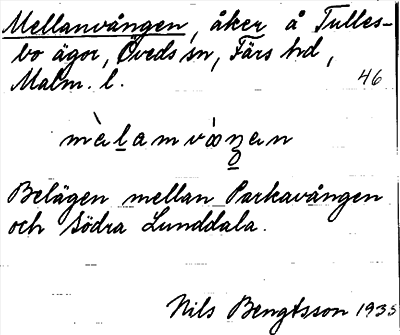 Mellanvången, åker å Tulles-
bo ägor, Öveds sn, Färs hd,
Malm. l. 46
Belägen mellan Parkavången
och södra Lunddala.
Nils Bengtsson 1935